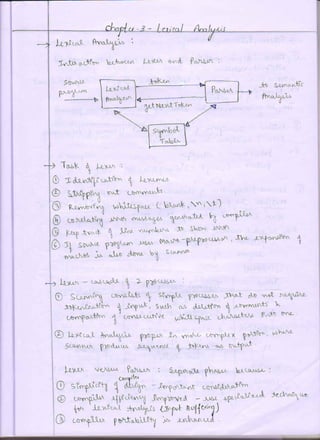 chapter - 3 - Lexical Analysis
→ Lexical Analysis :
Interaction between Lexer and Parser :
Source program
Lexical Analyzer
token
getNextToken
Parser
to Semantic Analysis
Symbol Table
→ Task of Lexer :
① Identification of Lexemes
② Stripping out comments
③ Removing whitespace (blank, \n, \t)
④ correlating error messages generated by compiler
⑤ Keep track of line numbers to show error
⑥ If source program uses macro-preprocessor, the expansion of
macros is also done by scanner
→ Lexer - cascade of 2 processes :
① Scanning consists of simple processes that do not require
tokenization of input, such as deletion of comments &
compaction of consecutive white space characters into one
② Lexical Analysis proper is more complex portion, where
scanner produces sequence of tokens as output
Lexer versus Parser : Separate phases because :
① Simplicity of compiler design - important consideration
② compiler efficiency improved - use specialized technique
for lexical analysis (Input buffering)
③ compiler portability is enhanced.